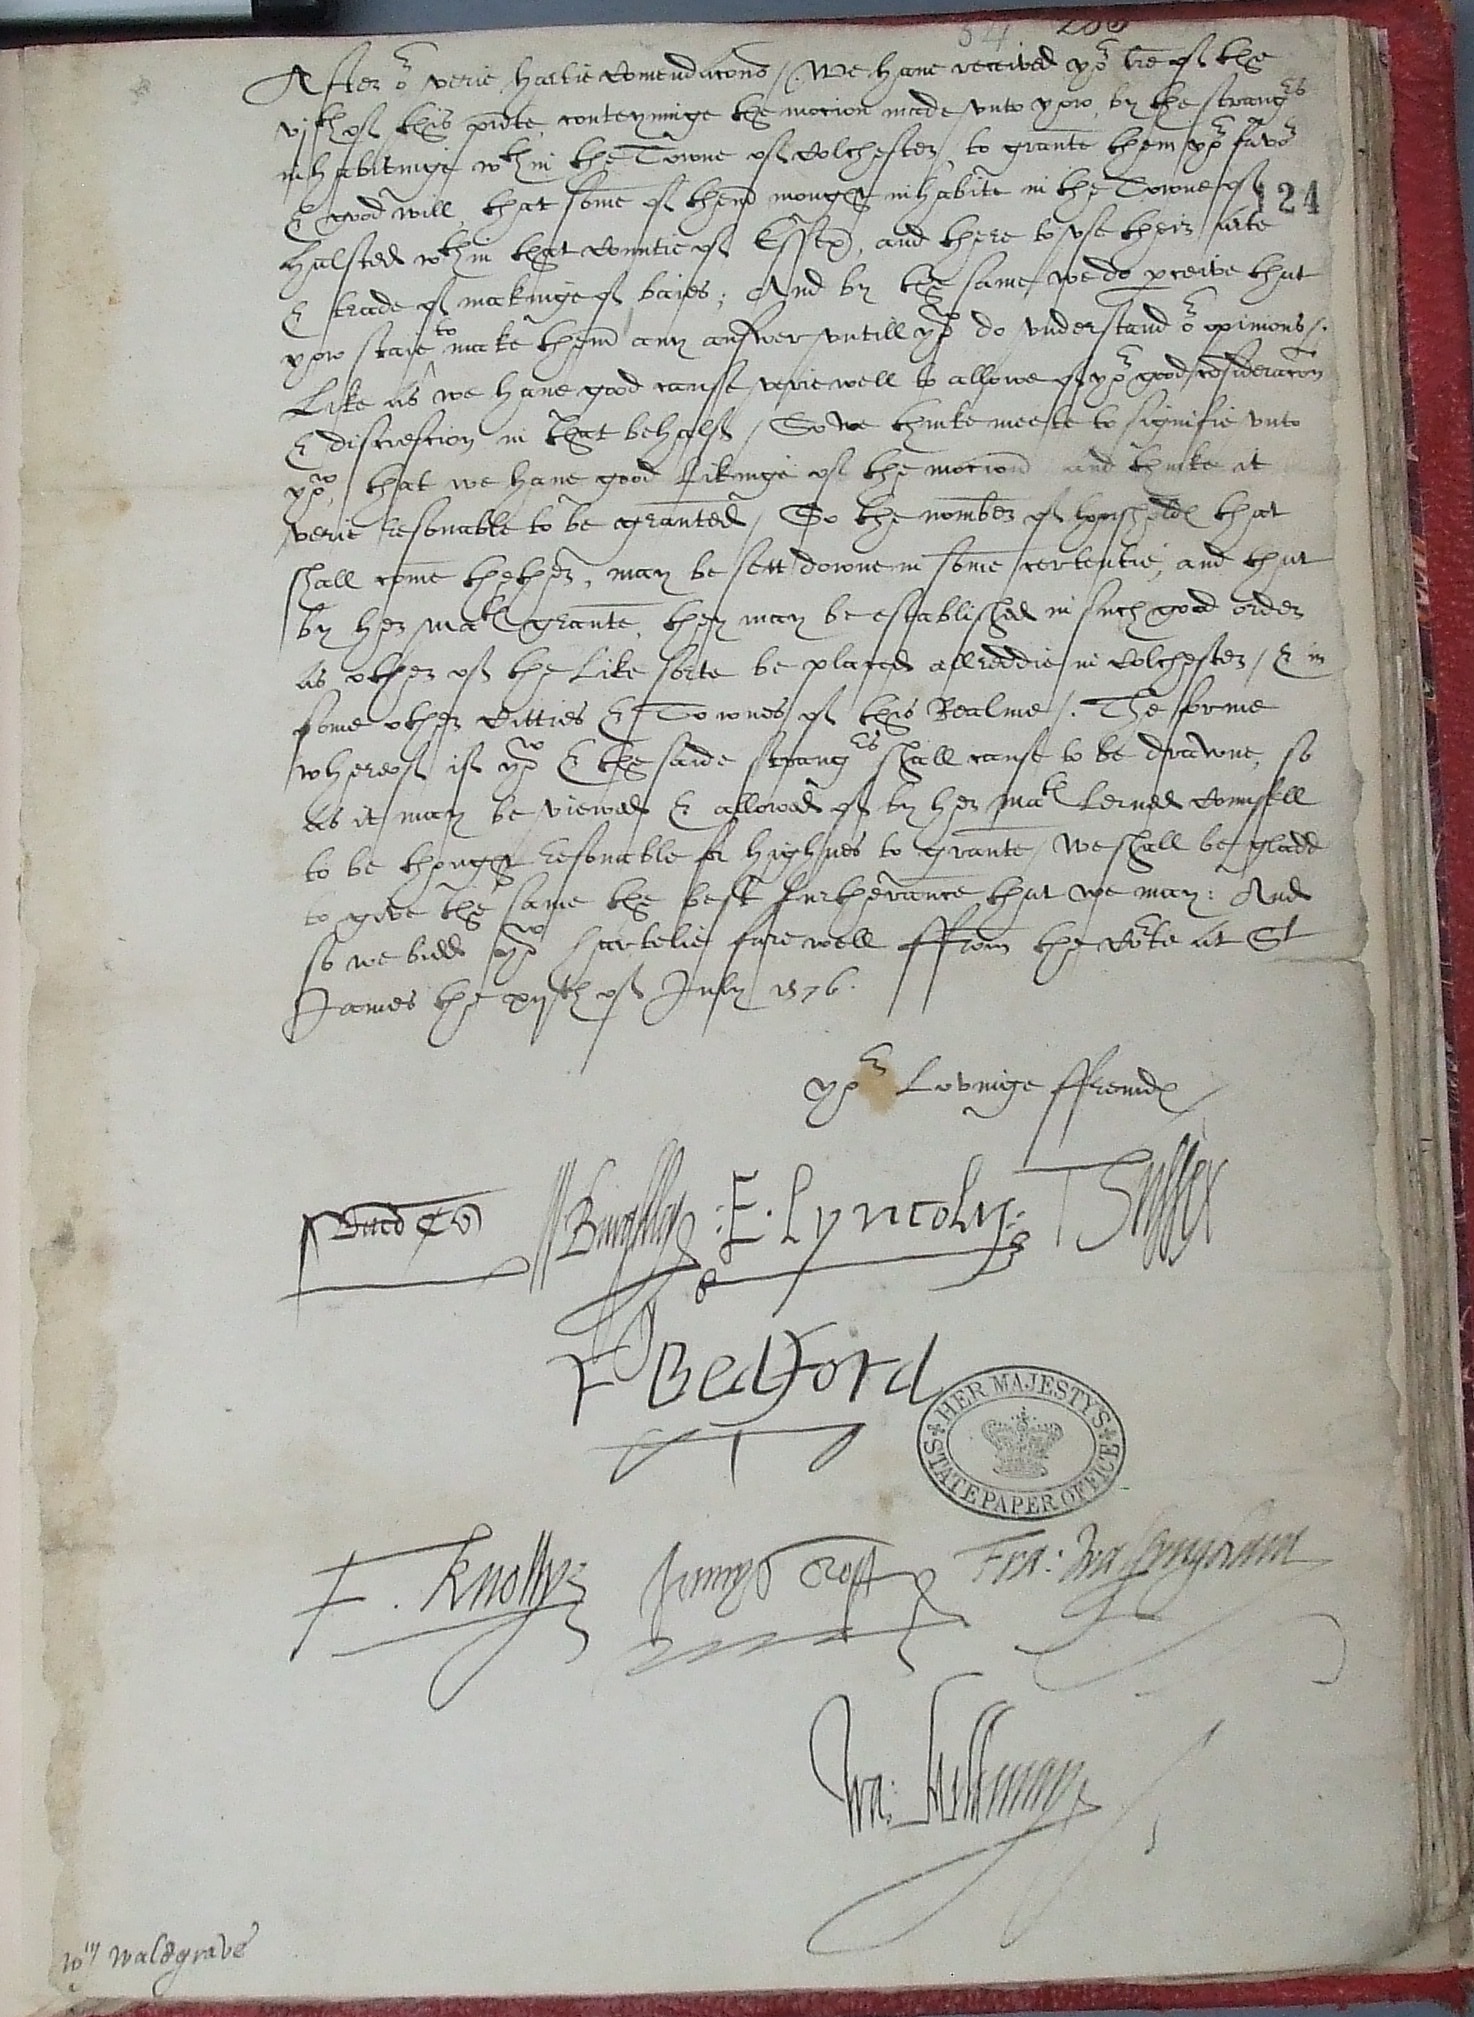 54 286
After or verie hartie Comendacons / We have received yor lre of the
vjth of this pnte, conteyninge the mocion made unto yow, by the strangers
inhabitinge wthin the Towne of Colchester, to graunte them yor favor
& good will, that some of them mought inhabite in the Towne of
124
Halsted wthin that Countie of Essex, and there to use their arte
& trade of makinge of baies; And by the same we do pceive that
yow staie to make them any answer untill yow do understand or opinions /.
Like as we have good cause verie well to allowe of yor good consideracon
& discrescion in that behalf / So we thinke meete to signifie unto
yow, that we have good likinge of the mocion and thinke it
verie resonable to be graunted / So the nomber of houshold that
shall come thether, may be sett downe in some certentie, and that
by her Mats graunte, they may be established in such good order
as other of the like sorte be placed allreddie in Colchester / & in
some other Citties & Townes of this Realme /. The forme
whereof if yow & the saide strangers shall cause to be drawne, so
as it may be viewed & allowed of by her Mats lerned Counsell
to be thought resonable for highnes to graunte / We shall be gladd
to give the same the best furtherance that we may: And
so we bidd yow hartelie farewell ffrom the Corte at St
James the xijth of July 1576.
yor Lovinge ffreinds
W Burghley : E. Lyncoln : T Sussex
F Bedford
HER MAJESTY'S STATE PAPER OFFICE
F. Knollys James Croft Fra: Walsyngham
Wa: Mildmay
Wm Waldgrave